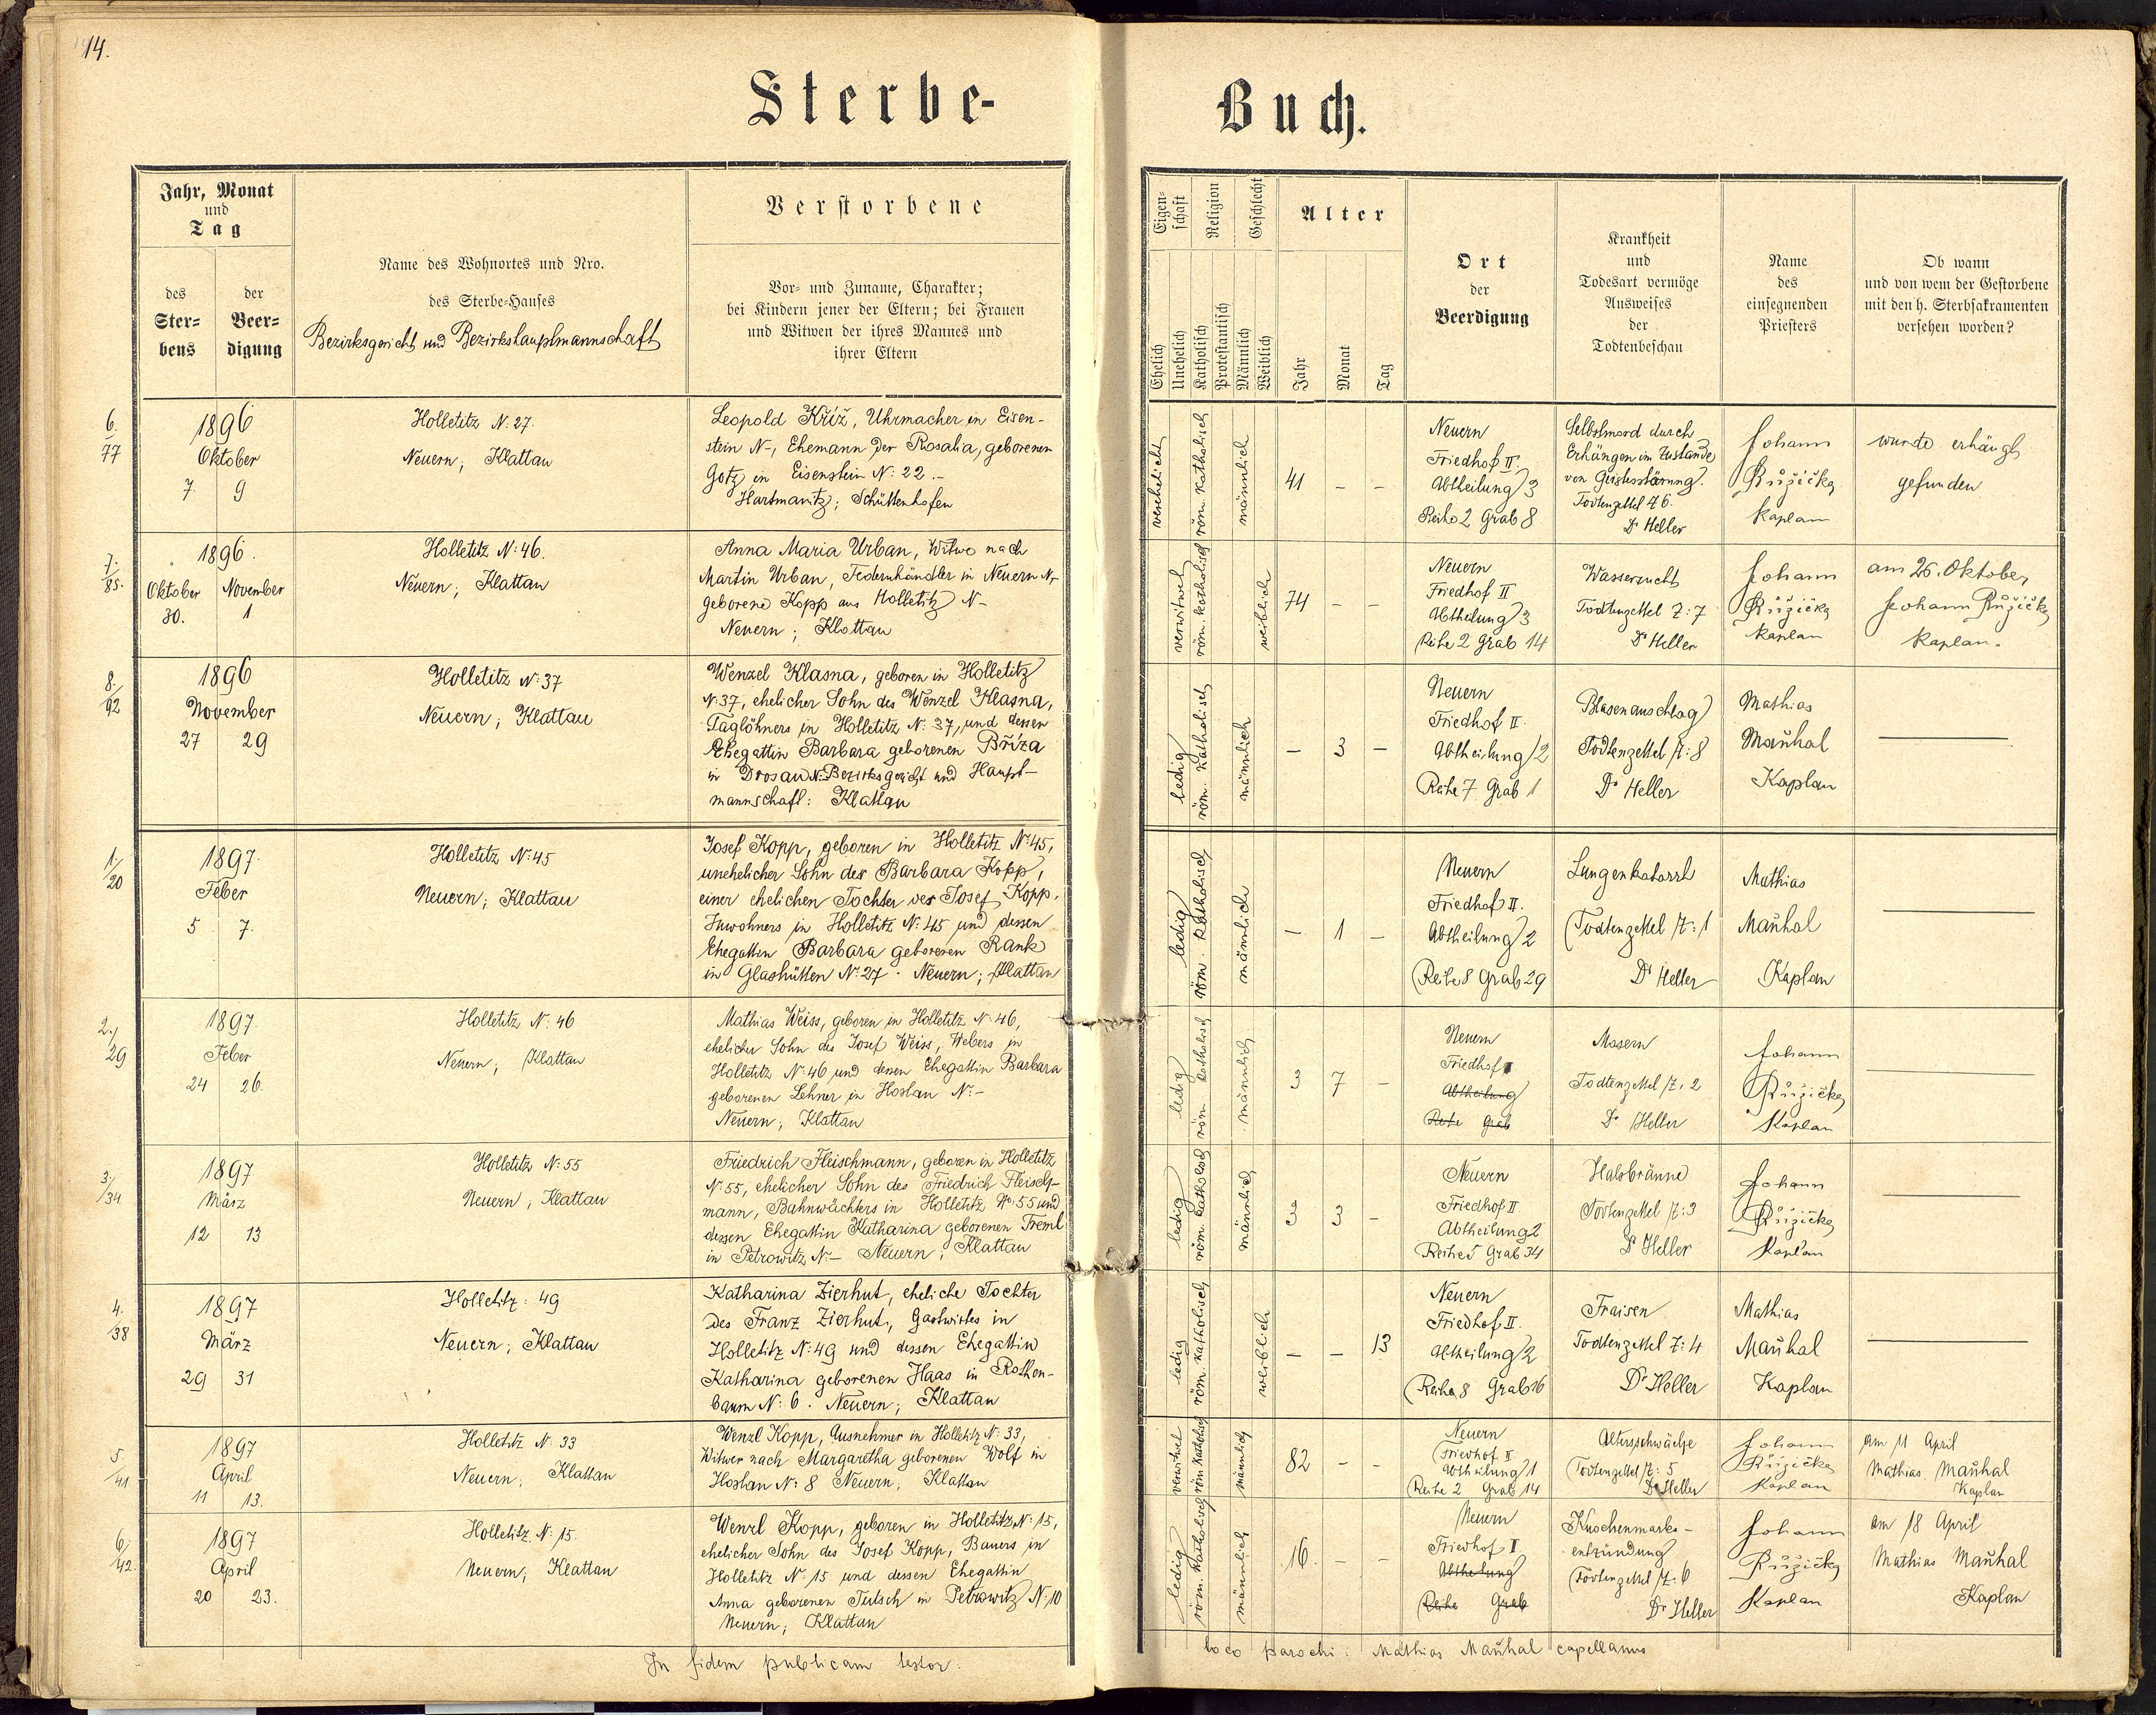 14.
Sterbe-
Buch.
Jahr, Monat
und
Tag
des
Ster-
bens
der
Beer-
digung
Name des Wohnortes und Nro.
des Sterbe-Hauses
Bezirksgericht und Bezirkshauptmannschaft
Verstorbene
Vor- und Zuname, Charakter;
bei Kindern jener der Eltern; bei Frauen
und Witwen der ihres Mannes und
ihrer Eltern
Eigen-
schaft
Religion
Geschlecht
Alter
Ehelich
Unehelich
Katholisch
Protestantisch
Männlich
Weiblich
Jahr
Monat
Tag
Ort
der
Beerdigung
Krankheit
und
Todesart vermöge
Ausweises
der
Todtenbeschau
Name
des
einsegnenden
Priesters
Ob wann
und von wem der Gestorbene
mit den h. Sterbsakramenten
versehen worden?
6.
77
1896
Oktober
7. 9
Holletitz N: 27.
Neuern; Klattau
Leopold Kříž, Uhrmacher in Eisen-
stein N-, Ehemann der Rosalia, geborenen
Götz in Eisenstein N: 22.-
Hartmanitz; Schüttenhofen
verehelicht
röm. katholisch
männlich
41 - -
Neuern
Friedhof II.
Abtheilung 3
Reihe 2 Grab 8
Selbstmord durch
Erhängen im Zustande
von Geistesstörung.
Todtenzettel 46.
Dr Heller
Johann
Růžička
Kaplan
wurde erhängt
gefunden
7.
85.
1896.
Oktober November
30. 1
Holletitz N: 46.
Neuern; Klattau
Anna Maria Urban, Witwe nach
Martin Urban, Federnhändler in Neuern N-,
geborene Kopp aus Holletitz N-
Neuern; Klattau
verwitwet
röm. katholisch
weiblich
74 - -
Neuern
Friedhof II
Abtheilung 3
Reihe 2 Grab 14
Wassersucht
Todtenzettel Z: 7
Dr Heller
Johann
Růžička
Kaplan
am 26. Oktober,
Johann Růžička
Kaplan.
8.
92
1896
November
27 29
Holletitz N: 37
Neuern; Klattau
Wenzel Klasna, geboren in Holletitz
N: 37, ehelicher Sohn des Wenzel Klasna,
Taglöhners in Holletitz N: 37, und dessen
Ehegattin Barbara geborenen Bříza
in Drosau N: Bezirksgericht und Haupt-
mannschaft: Klattau
ledig
röm. katholisch
männlich
- 3 -
Neuern
Friedhof II.
Abtheilung 2
Reihe 7 Grab 1
Blasenauschlag
Todtenzettel Z: 8
Dr Heller
Mathias
Maňhal
Kaplan
1/
20
1897.
Feber
5 7.
Holletitz N: 45
Neuern; Klattau
Josef Kopp, geboren in Holletitz N: 45,
unehelicher Sohn der Barbara Kopp,
einer ehelichen Tochter des Josef Kopp,
Inwohners in Holletitz N: 45 und dessen
Ehegattin Barbara geborenen Rank
in Glashütten N: 27. Neuern; Klattau
ledig
röm. katholisch
männlich
- 1 -
Neuern
Friedhof II.
Abtheilung 2
Reihe 8 Grab 29
Lungenkatarrh
Todtenzettel Z: 1
Dr Heller
Mathias
Maňhal
Kaplan
2./
29
1897.
Feber
24 26.
Holletitz N: 46
Neuern; Klattau
Mathias Weiss, geboren in Holletitz N: 46,
ehelicher Sohn des Josef Weiss, Webers in
Holletitz N: 46 und dessen Ehegattin Barbara
geborenen Lehner in Hoslau N:-
Neuern; Klattau
ledig
röm. katholisch
männlich
3 7 -
Neuern
Friedhof I
Abtheilung
Reihe Grab
Masern
Todtenzettel Z. 2
Dr Heller
Johann
Růžička
Kaplan
3/
34
1897
März
12 13
Holletitz N: 55
Neuern; Klattau
Friedrich Fleischmann, geboren in Holletitz
N: 55, ehelicher Sohn des Friedrich Fleisch-
mann, Bahnwächters in Holletitz No: 55 und
dessen Ehegattin Katharina geborenen Treml
in Petrowitz N:- Neuern; Klattau
ledig
röm. katholisch
männlich
3 3 -
Neuern
Friedhof II
Abtheilung 2
Reihe 5 Grab 34
Halsbräune
Todtenzettel Z: 3
Dr Heller
Johann
Růžička
Kaplan
4.
38
1897
März
29 31
Holletitz: 49
Neuern; Klattau
Katharina Zierhut, eheliche Tochter
des Franz Zierhut, Gastwirtes in
Holletitz N: 49 und dessen Ehegattin
Katharina geborenen Haas in Rothen-
baum N: 6. Neuern; Klattau
ledig
röm. katholisch
weiblich
- - 13
Neuern
Friedhof II.
Abtheilung 2
Reihe 8 Grab 26
Fraisen
Todtenzettel Z: 4
Dr Heller
Mathias
Maňhal
Kaplan
5
41
1897
April
11 13.
Holletitz N: 33
Neuern; Klattau
Wenzl Kopp, Ausnehmer in Holletitz N: 33,
Witwer nach Margaretha geborenen Wolf in
Hoslau N: 8 Neuern; Klattau
verwitwet
röm. katholisch
männlich
82 - -
Neuern
Friedhof II
Abtheilung 1
Reihe 2 Grab 14
Altersschwäche
Todtenzettel Z: 5
Dr Heller
Johann
Růžička
Kaplan
am 11 April
Mathias Maňhal
Kaplan
6/
42.
1897
April
20 23.
Holletitz N: 15.
Neuern; Klattau
Wenzl Kopp, geboren in Holletitz N: 15,
ehelicher Sohn des Josef Kopp, Bauers in
Holletitz N: 15 und dessen Ehegattin
Anna geborenen Tutsch in Petrowitz N: 10
Neuern; Klattau
ledig
röm. katholisch
männlich
16. - -
Neuern
Friedhof I
Abtheilung
Reihe Grab
Knochenmarks-
entzündung
Todtenzettel Z. 6
Dr Heller
Johann
Růžička
Kaplan
am 18 April
Mathias Maňhal
Kaplan
In fidem publicam testor:
loco parochi: Mathias Maňhal capellanus